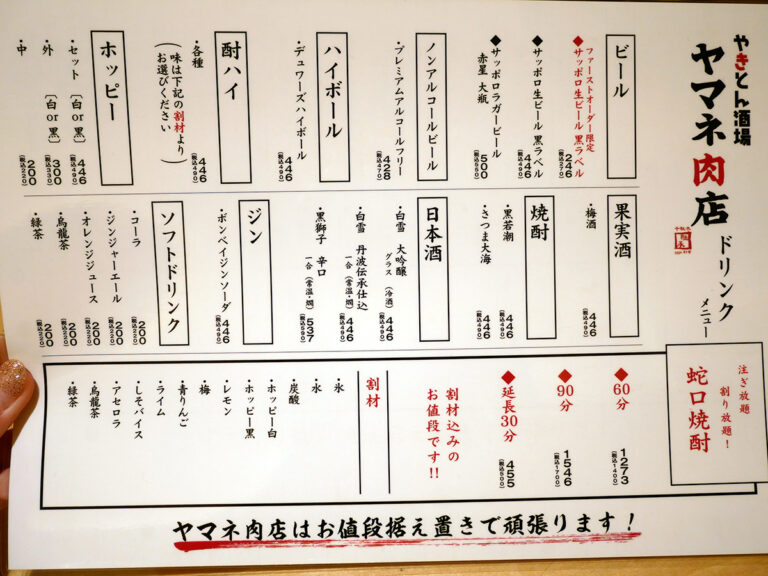 やきとん酒場
ヤマネ肉店
ドリンク
メニュー
ビール
ファーストオーダー限定
◆サッポロ生ビール 黒ラベル
246
(税込270)
◆サッポロ生ビール 黒ラベル
446
(税込490)
◆サッポロラガービール
赤星 大瓶
500
(税込550)
ノンアルコールビール
・プレミアムアルコールフリー
428
(税込470)
ハイボール
・デュワーズハイボール
446
(税込490)
酎ハイ
・各種
446
(税込490)
(味は下記の割材より
お選びください)
ホッピー
・セット [白or黒]
446
(税込490)
・外 [白or黒]
300
(税込330)
・中
200
(税込220)
果実酒
・梅酒
446
(税込490)
焼酎
・黒若潮
446
(税込490)
・さつま大海
446
(税込490)
日本酒
・白雪 大吟醸
グラス (冷酒)
446
(税込490)
・白雪 丹波伝承仕込
一合 (常温・燗)
446
(税込490)
・黒獅子 辛口
一合 (常温・燗)
537
(税込590)
ジン
・ボンベイジンソーダ
446
(税込490)
ソフトドリンク
・コーラ
200
(税込220)
・ジンジャーエール
200
(税込220)
・オレンジジュース
200
(税込220)
・烏龍茶
200
(税込220)
・緑茶
200
(税込220)
注ぎ放題
割り放題!
蛇口焼酎
◆60分
1273
(税込1400)
◆90分
1546
(税込1700)
◆延長30分
455
(税込500)
割材込みの
お値段です!!
割材
・氷
・水
・炭酸
・ホッピー白
・ホッピー黒
・レモン
・梅
・青りんご
・ライム
・しそバイス
・アセロラ
・烏龍茶
・緑茶
ヤマネ肉店はお値段据え置きで頑張ります!